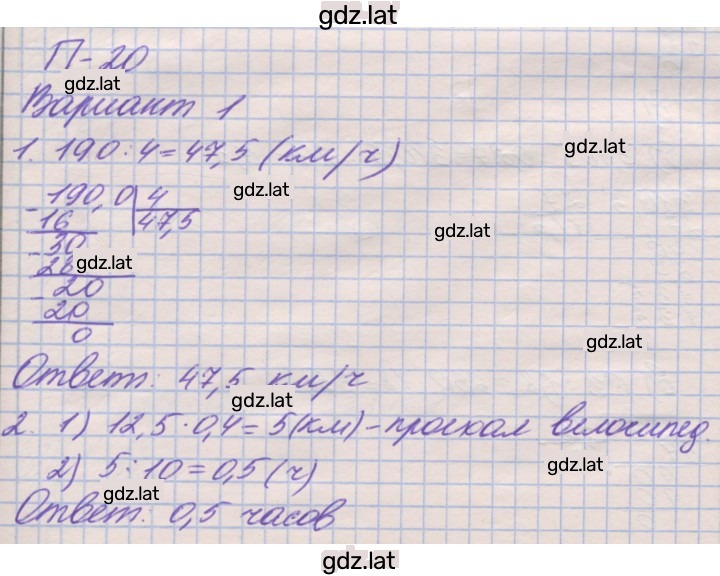 gdz.lat
П-20
gdz.lat
Вариант 1
1. 190:4=47,5 (км/ч)
gdz.lat
190,0 4
gdz.lat
- 16 47,5
gdz.lat
- 30
28
gdz.lat
- 20
20
0
gdz.lat
Ответ: 47,5 км/ч
gdz.lat
2. 1) 12,5·0,4=5(км)-проехал велосипед.
2) 5:10=0,5(ч)
gdz.lat
gdz.lat
Ответ: 0,5 часов
gdz.lat